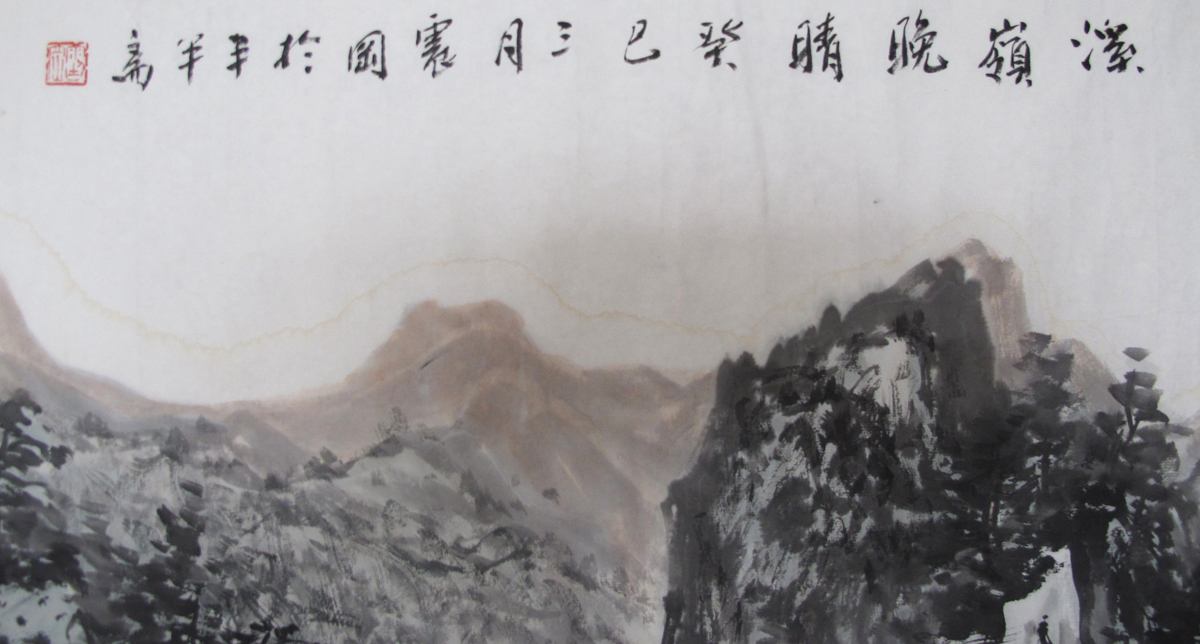 溪嶺晚晴癸巳三月震國於半半齋